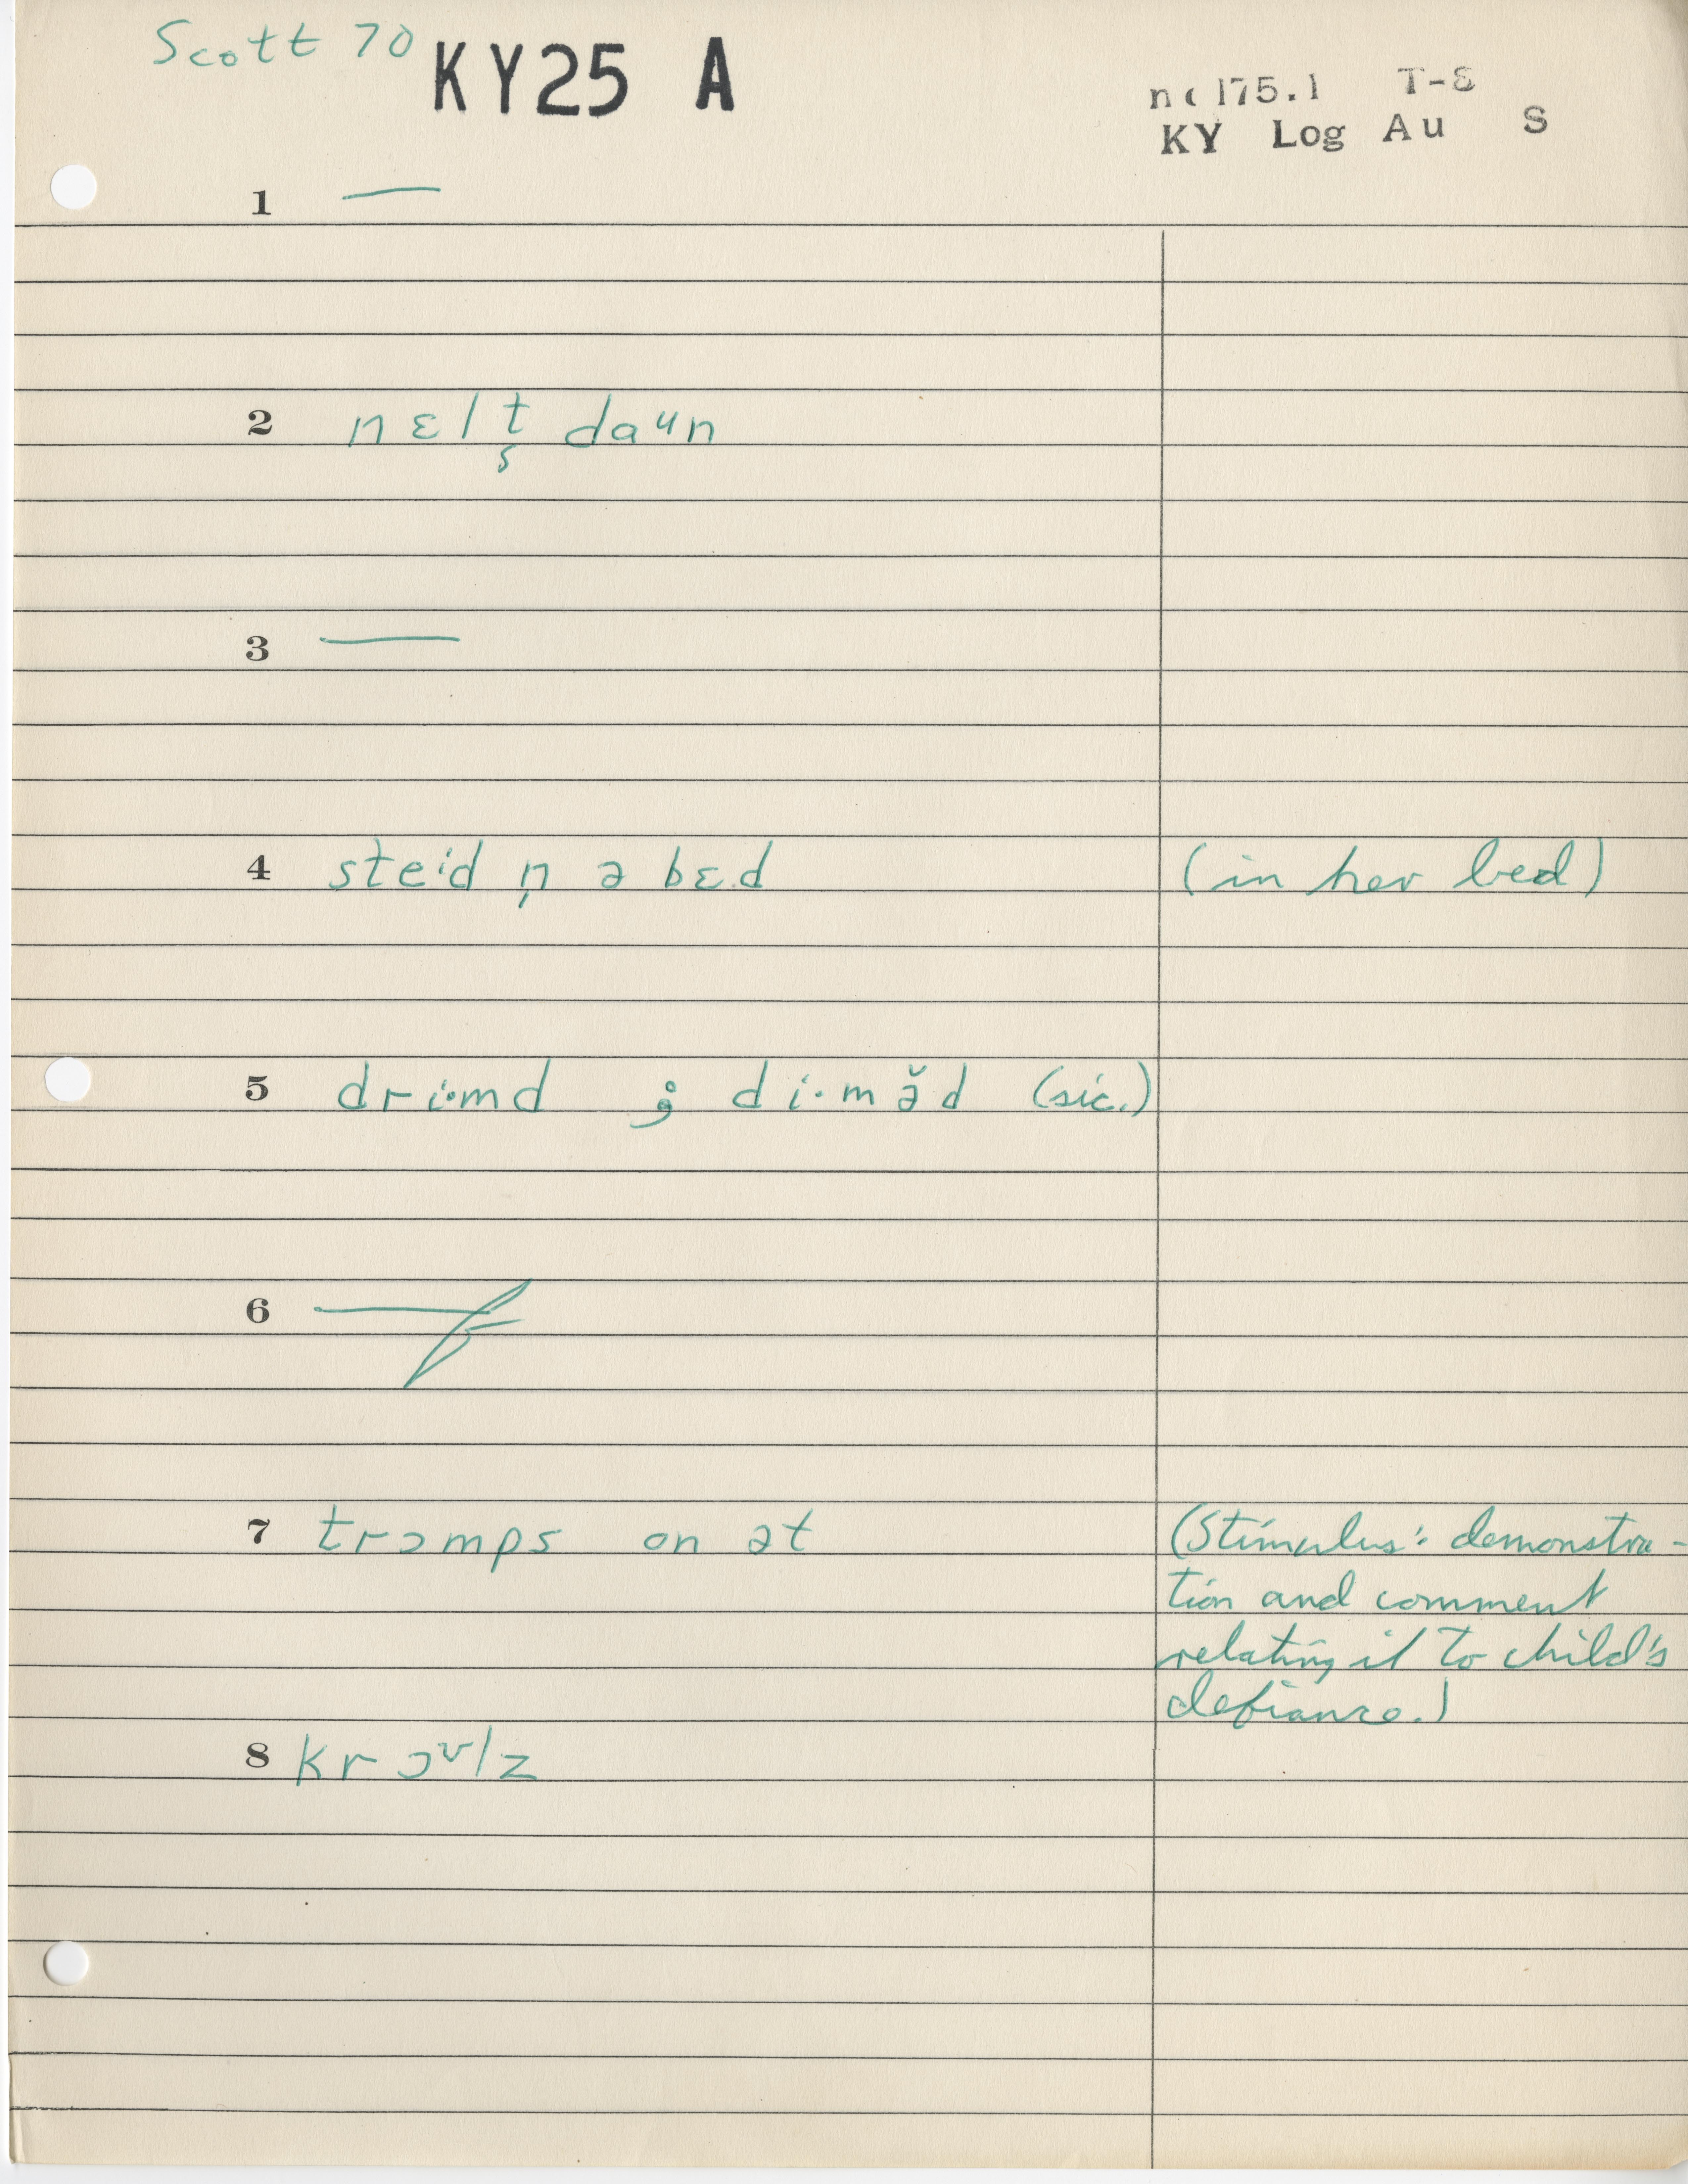 Scott 70 KY25 A
175.1 T-8
KY Log Au S
1 —
2 nɛlt̬ daᵘn
3 —
4 steⁱd n̩ ə bɛ.d (in her bed)
5 dri·md ; di·mə̆d (sic.)
6 —
7 trɔmps on ət (Stimulus: demonstra-
tion and comment
relating it to child's
defiance.)
8 krɔᶹlz